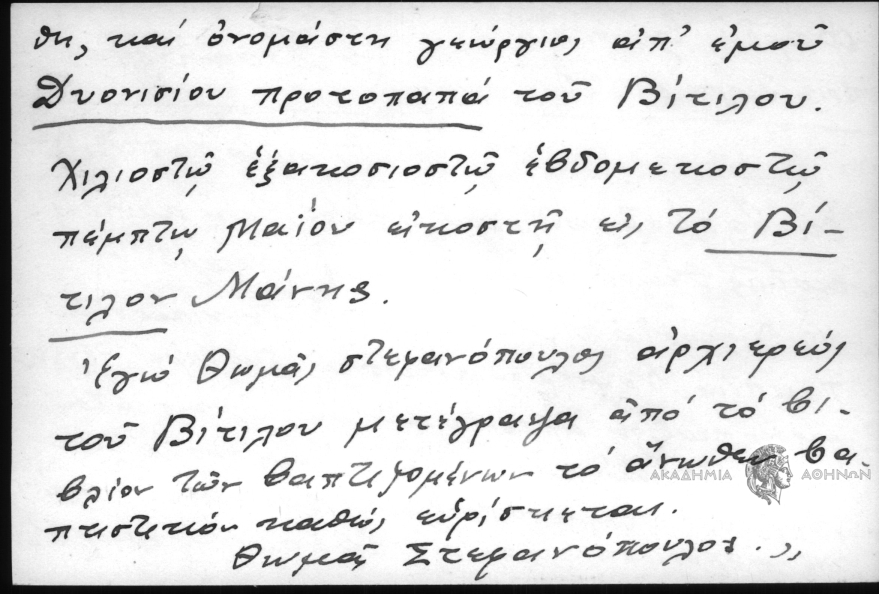 θη, καί ὀνομάστη γεώργιος ἀπ' ἐμοῦ
Δυονισίου προτοπαπά τοῦ Βίτιλου.
Χιλιοστῷ ἑξακοσιοστῷ ἑβδομεκοστῷ
πέμπτῳ Μαΐου εἰκοστῇ εἰς τό Βί-
τιλον Μάνης.
Ἐγώ Θωμᾶς στεφανόπουλος ἀρχιερεύς
τοῦ Βίτιλου μετέγραψα ἀπό τό βι-
βλίον τῶν βαπτιζομένων τό ἄνωθεν βα-
ΑΚΑΔΗΜΙΑ ΑΘΗΝΩΝ
πτιστικόν καθώς εὑρίσκεται.
Θωμᾶς Στεφανόπουλος.